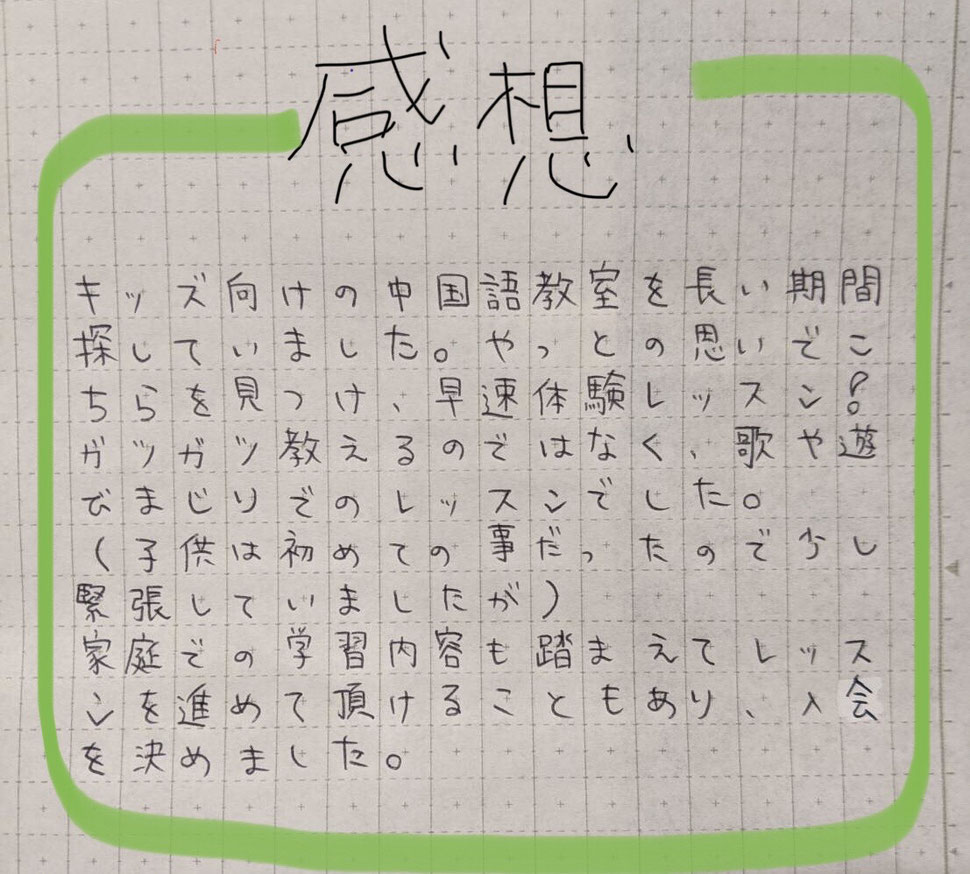 感想
キッズ向けの中国語教室を長い期間
探していました。やっとの思いでこ
ちらを見つけ、早速体験レッスン?
ガツガツ教えるのではなく、歌や遊
びまじりでのレッスンでした。
(子供は初めての事だったので少し
緊張していましたが)
家庭での学習内容も踏まえてレッス
ンを進めて頂けることもあり、入会
を決めました。